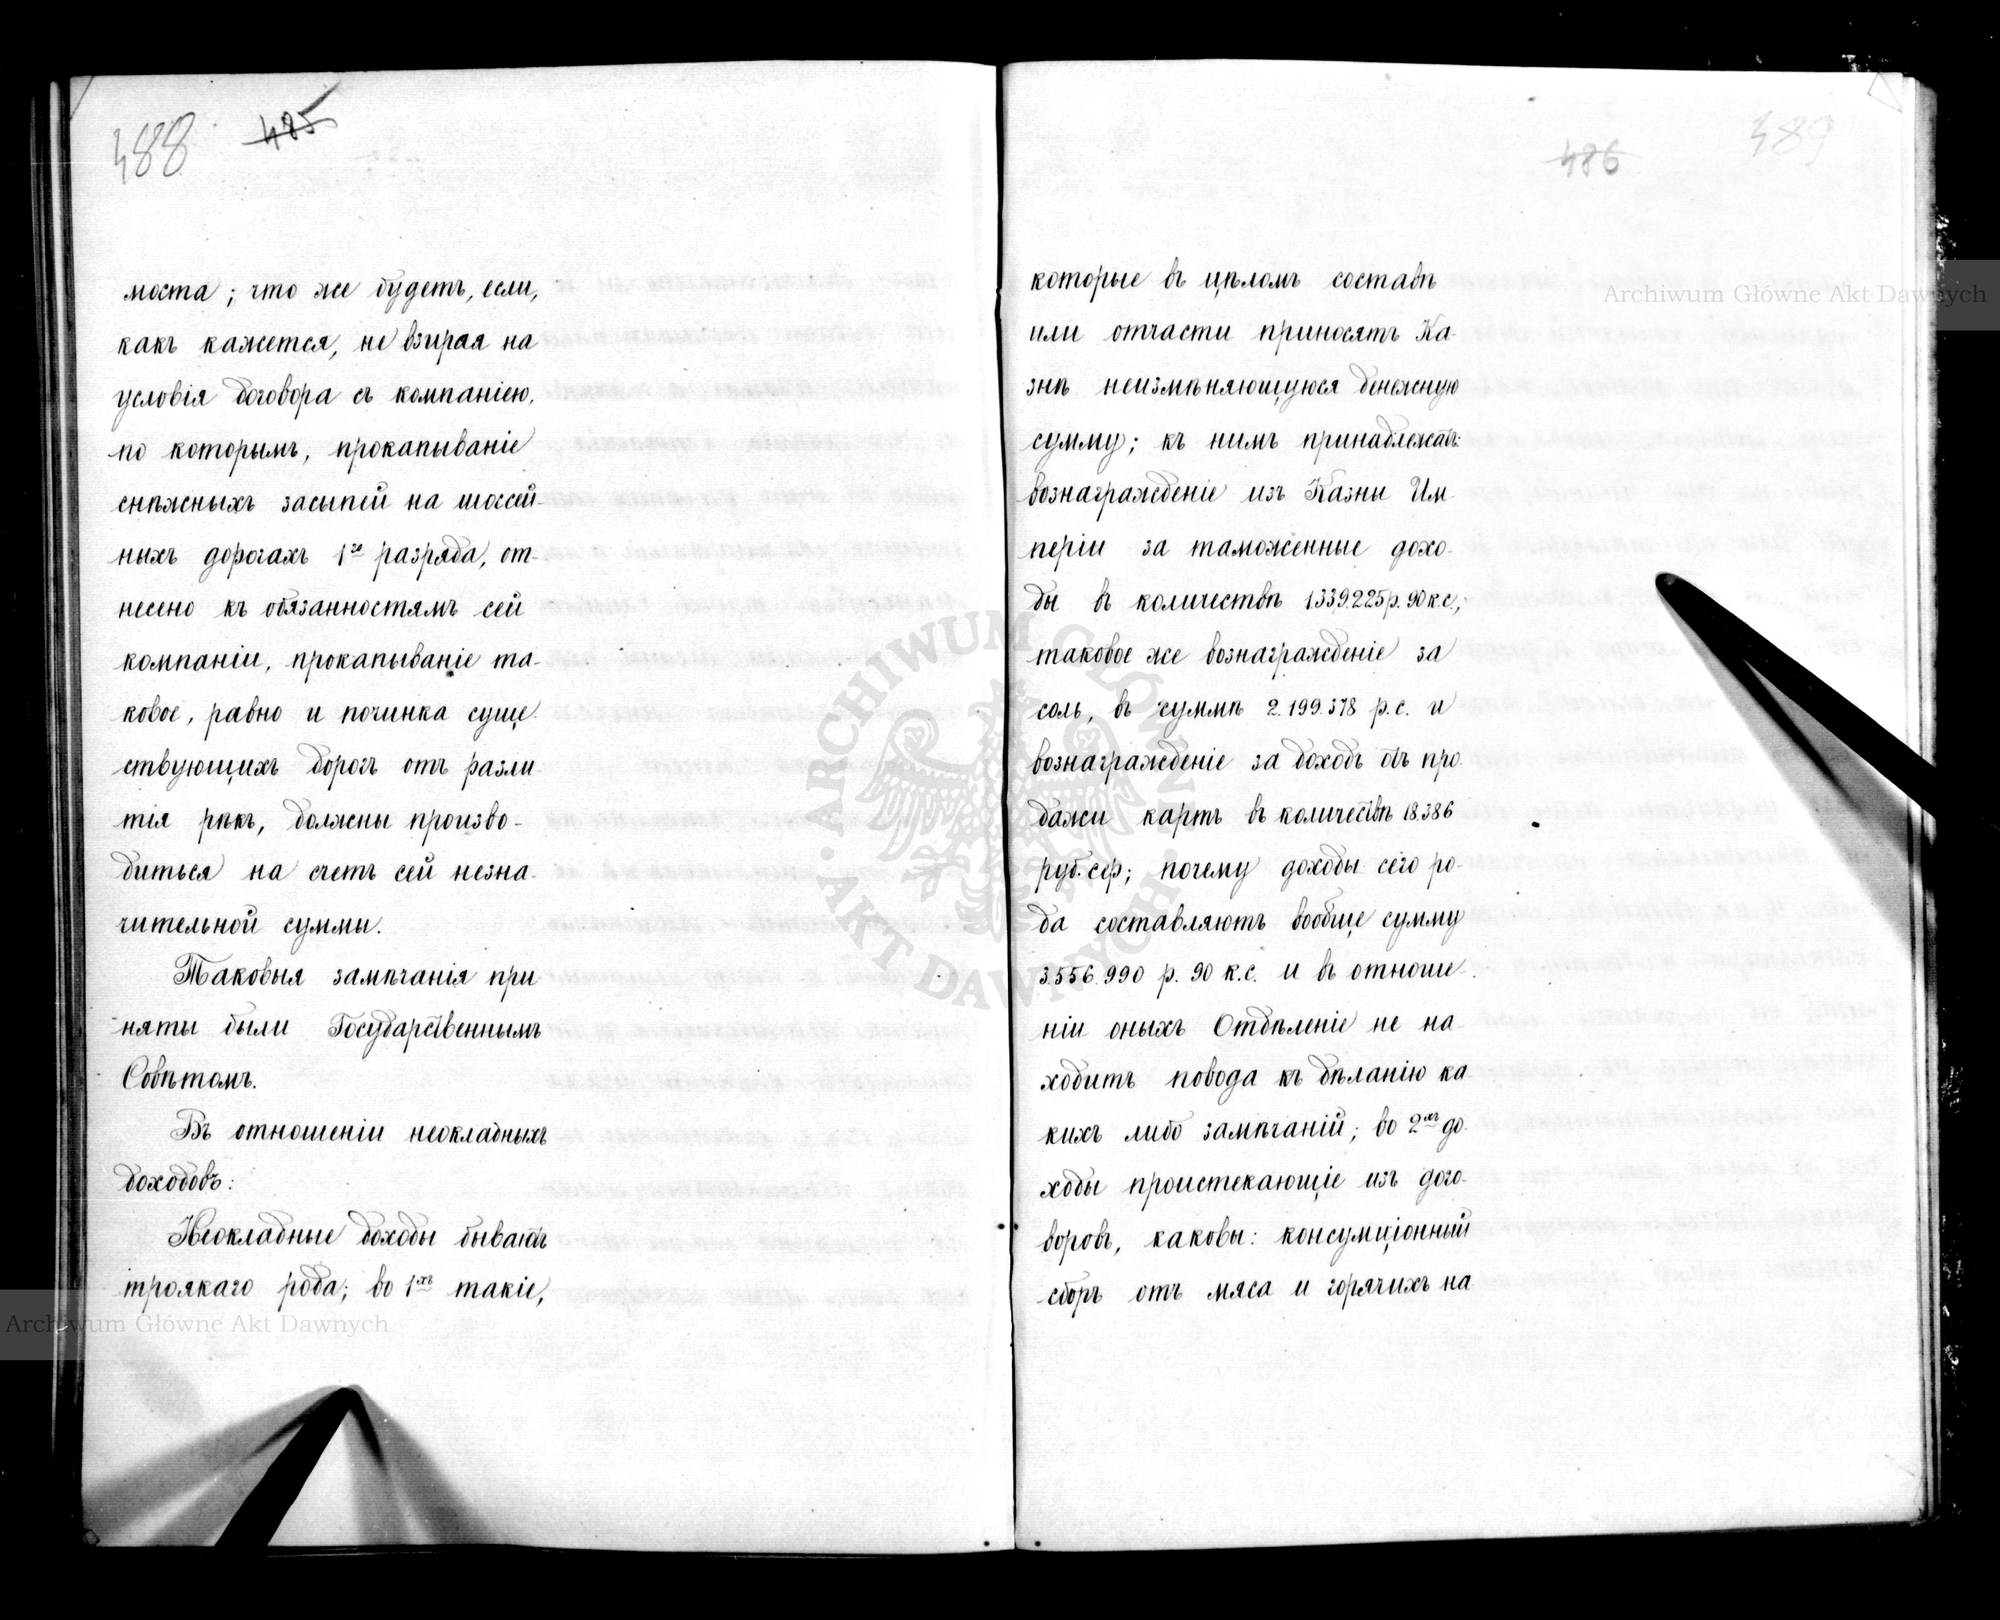 488 485
моста; что же будетъ, если,
какъ кажется, не взирая на
условія договора съ компаніею,
по которымъ, прокапываніе
снѣжныхъ засыпей на шоссей-
ныхъ дорогахъ 1го разряда, от-
несено къ обязанностямъ сей
компаніи, прокапываніе та-
ковое, равно и починка суще-
ствующихъ дорогъ отъ разли-
тія рѣкъ, должны произво-
диться на счетъ сей незна-
чительной суммы.
Таковыя замѣчанія при-
няты были Государственнымъ
Совѣтомъ.
Въ отношеніи неокладныхъ
доходовъ:
Неокладные доходы бываютъ
троякаго рода; во 1хъ такіе,
486 489
которые въ цѣломъ составѣ
или отчасти приносятъ Ка-
знѣ неизмѣняющуюся денежную
сумму; къ нимъ принадлежатъ:
вознагражденіе изъ Казны Им-
періи за таможенные дохо-
ды въ количествѣ 1.339.225 р. 90 к.с.,
таковое же вознагражденіе за
соль, въ суммѣ 2.199.378 р.с. и
вознагражденіе за доходъ отъ про-
дажи картъ въ количествѣ 18.386
руб. сер; почему доходы сего ро-
да составляютъ вообще сумму
3.556.990 р. 90 к.с. и въ отноше-
ніи оныхъ Отдѣленіе не на-
ходитъ повода къ дѣланію ка-
кихъ либо замѣчаній; во 2хъ до-
ходы проистекающіе изъ дого-
воровъ, каковы: консумціонный
сборъ отъ мяса и горячихъ на
Archiwum Główne Akt Dawnych
Archiwum Główne Akt Dawnych
ARCHIWUM GŁÓWNE AKT DAWNYCH